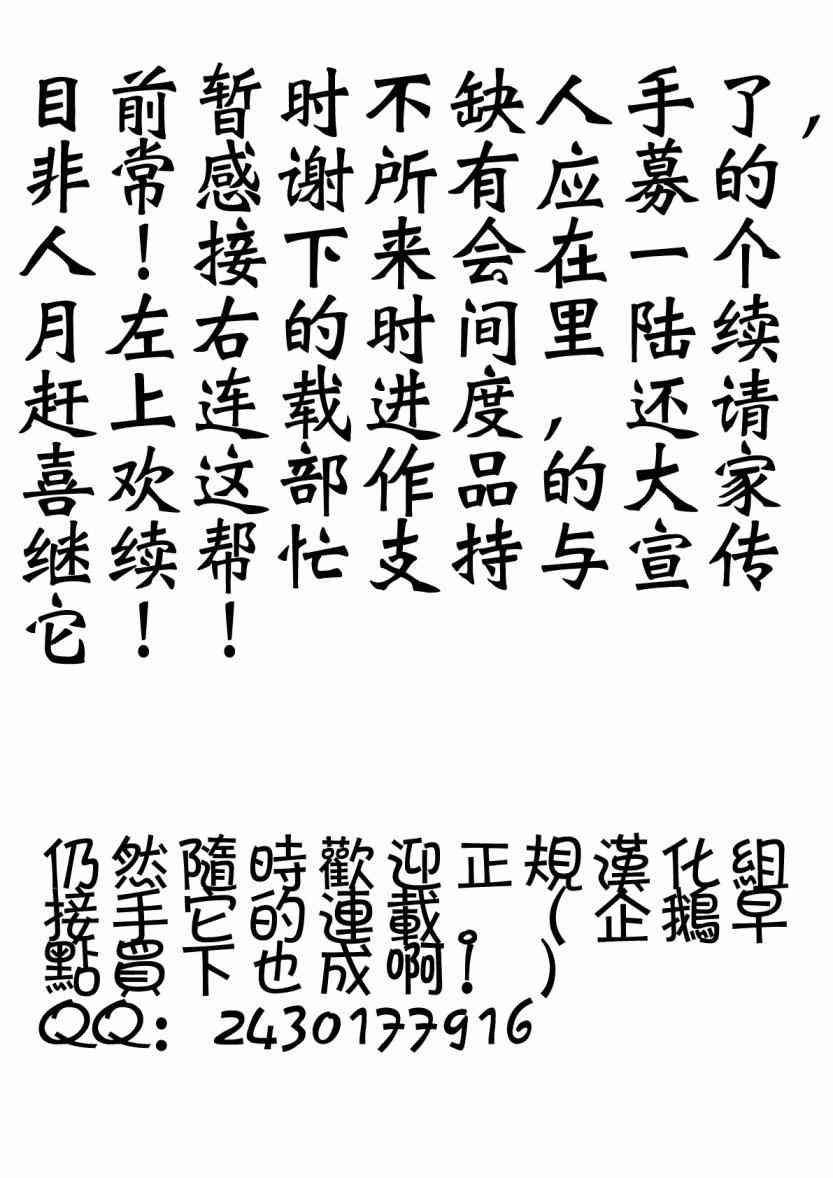 目前暂时不缺人手了，
非常感谢所有应募的
人！接下来会在一个
月左右的时间里陆续
赶上连载进度，还请
喜欢这部作品的大家
继续帮忙支持与宣传
它！！
仍然隨時歡迎正規漢化組
接手它的連載。（企鵝早
點買下也成啊！）
QQ：2430177916